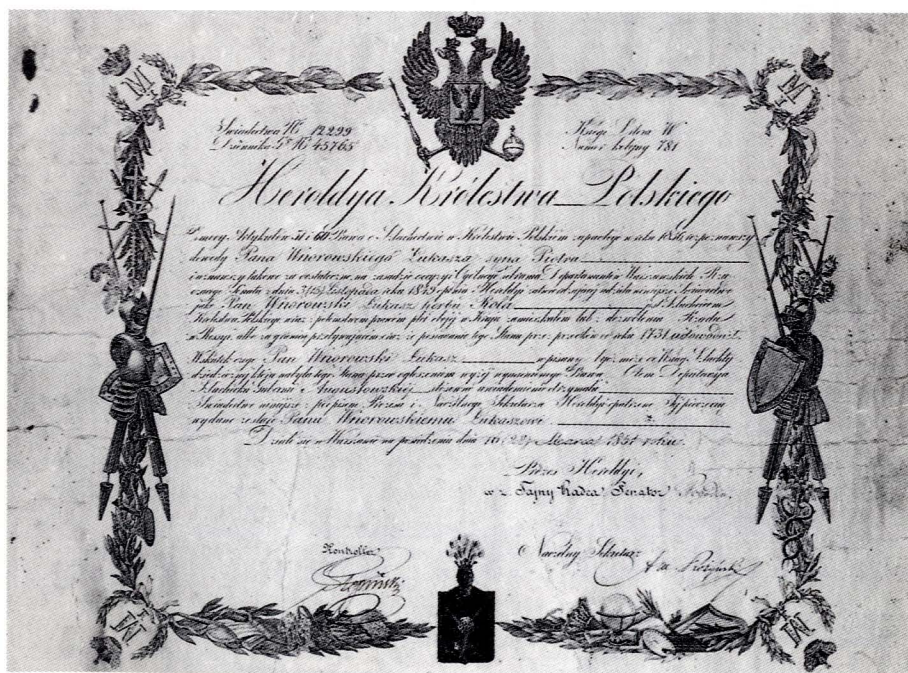 Świadectwa № 12299
Dziennika Gł. № 45765
Księgi Litera W
Numer kolejny 781
Heroldya Królestwa Polskiego
Z mocy Artykułów 51 i 60 Prawa o Szlachectwie w Królestwie Polskiem zapadłego w roku 1836 rozpoznawszy
dowody Pana Wnorowskiego Łukasza syna Piotra
i uznawszy takowe za dostateczne, na zasadzie decyzyi Ogólnego Zebrania Departamentów Warszawskich Rzą-
dzącego Senatu z dnia Listopada roku 1849 opinią Heroldyi zatwierdzającej udziela niniejsze Świadectwo
jako Pan Wnorowski Łukasz herbu Rola jest Szlachcicem
Królestwa Polskiego wraz z potomstwem prawem płci obojej w Kraju zamieszkałem lub z dozwolenia Rządu
w Rossyi, albo za granicą przebywającem i że posiadanie tego Stanu przez przodków od roku 1731 udowodnił.
Wskutek czego Pan Wnorowski Łukasz wpisany być może do Księgi Szlachty
dziedzicznej która nabyła tego Stanu przed ogłoszeniem wyżej wymienionego Prawa. O tem Deputacyja
Szlachecka Gubernii Augustowskiej stosowne uwiadomienie otrzymała.
Świadectwo niniejsze podpisem Prezesa i Naczelnego Sekretarza Heroldyi opatrzone Jej pieczęcią
wydane zostaje Panu Wnorowskiemu Łukaszowi
Działo się w Warszawie na posiedzeniu dnia 10 (22) Marca 1851 roku.
Prezes Heroldyi,
w z. Tajny Radca Senator
Kontroller
Naczelny Sekretarz
M
M
M
M